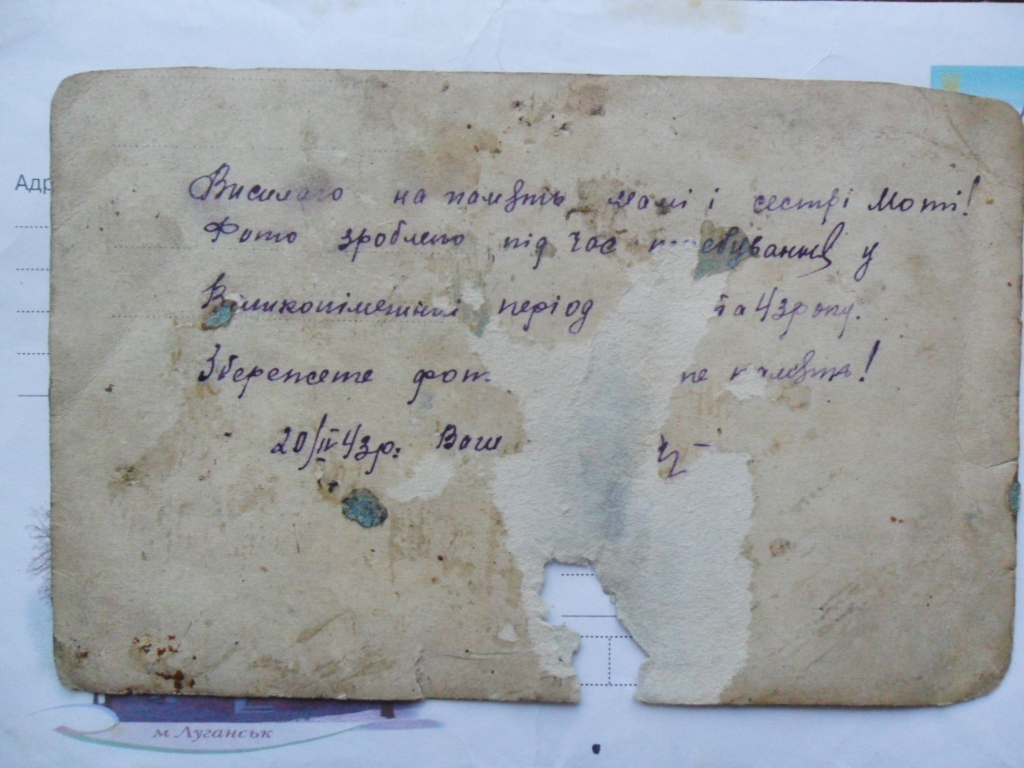 Висилаю на память мамі і сестрі Моті!
Фото зроблено під час перебування у
період та 43 року.
Збережете фот не память!
20/IV 43р. Ваш
Адр
м Луганськ